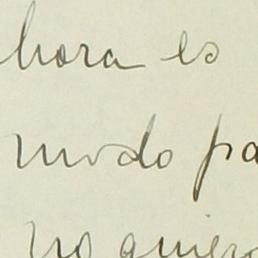 hora es
modo pa
no quiero